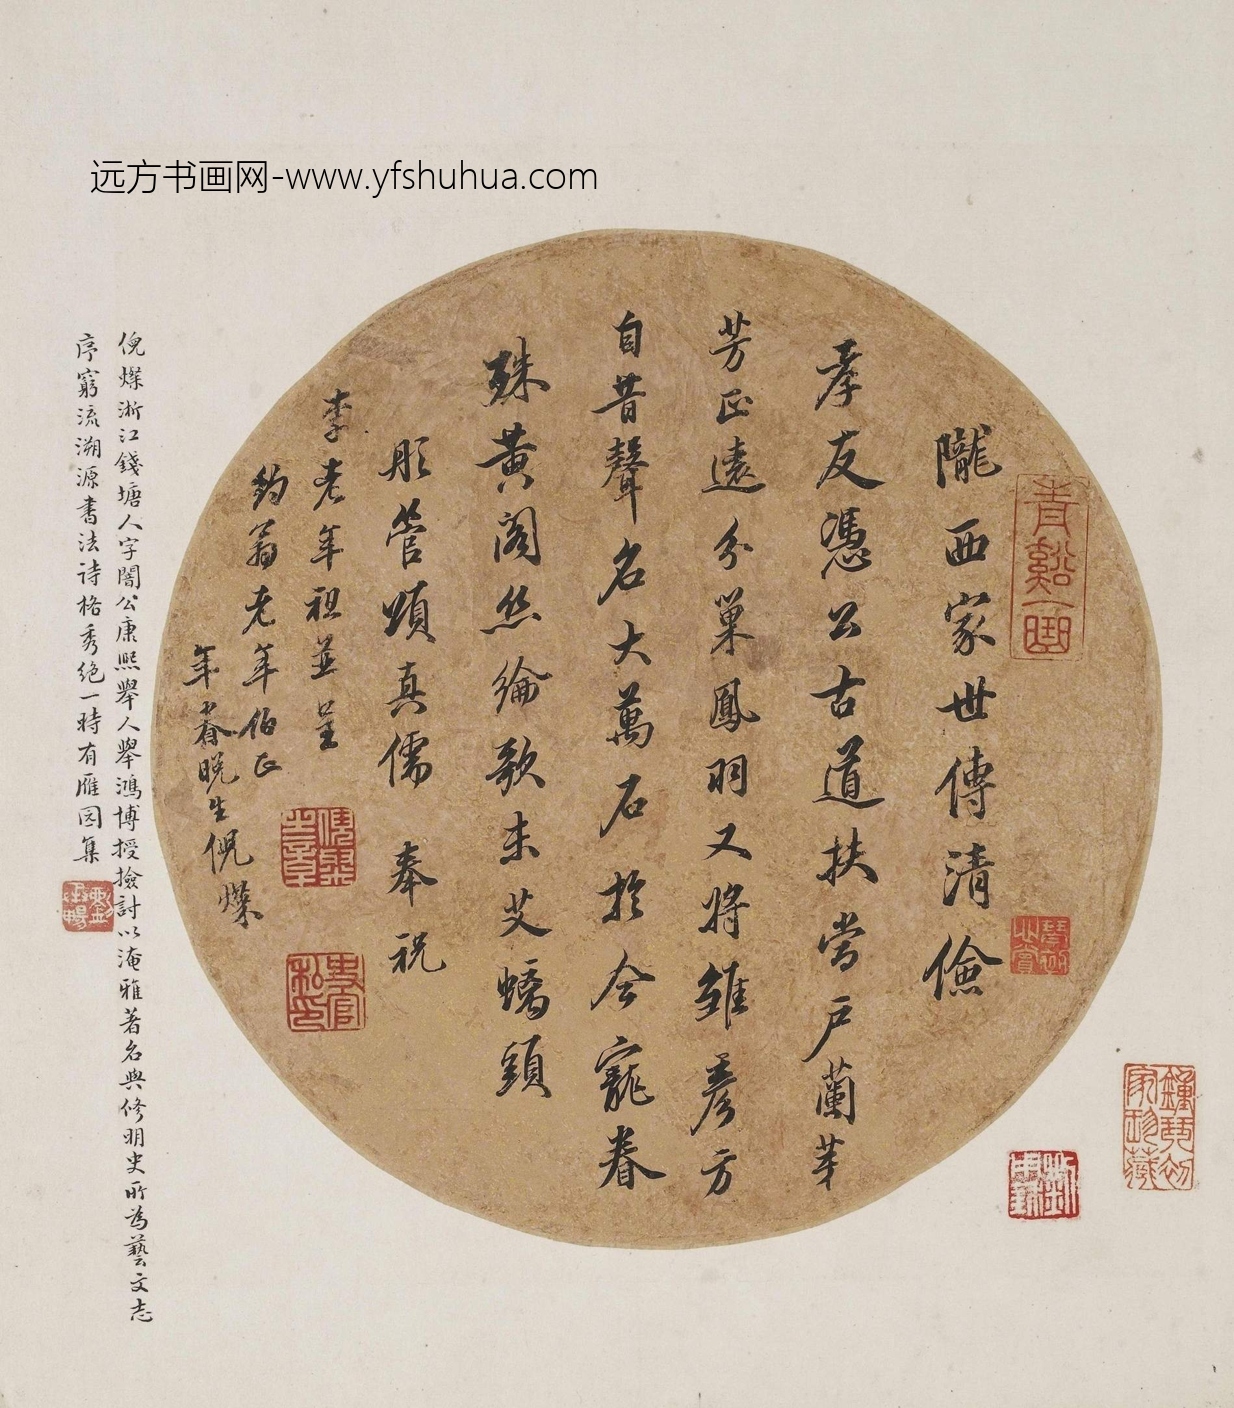 远方书画网-www.yfshuhua.com
隴西家世傳清儉
孝友憑公古道扶當戶蘭芽
芳正遠分巢鳳羽又將雛彥方
自昔聲名大萬石於今寵眷
殊黃閣絲綸歌未艾螭頭
彤管頌真儒 奉祝
李老年祖並呈
鈞翁老年伯正
年眷晚生倪燦
倪燦浙江錢塘人字闇公康熙舉人舉鴻博授撿討以淹雅著名與修明史所為藝文志
序窮流溯源書法诗格秀絕一時有雁园集